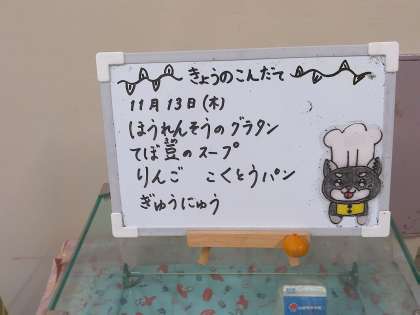 きょうのこんだて
11月13日(木)
ほうれんそうのグラタン
てぼ豆のスープ
りんご こくとうパン
ぎゅうにゅう